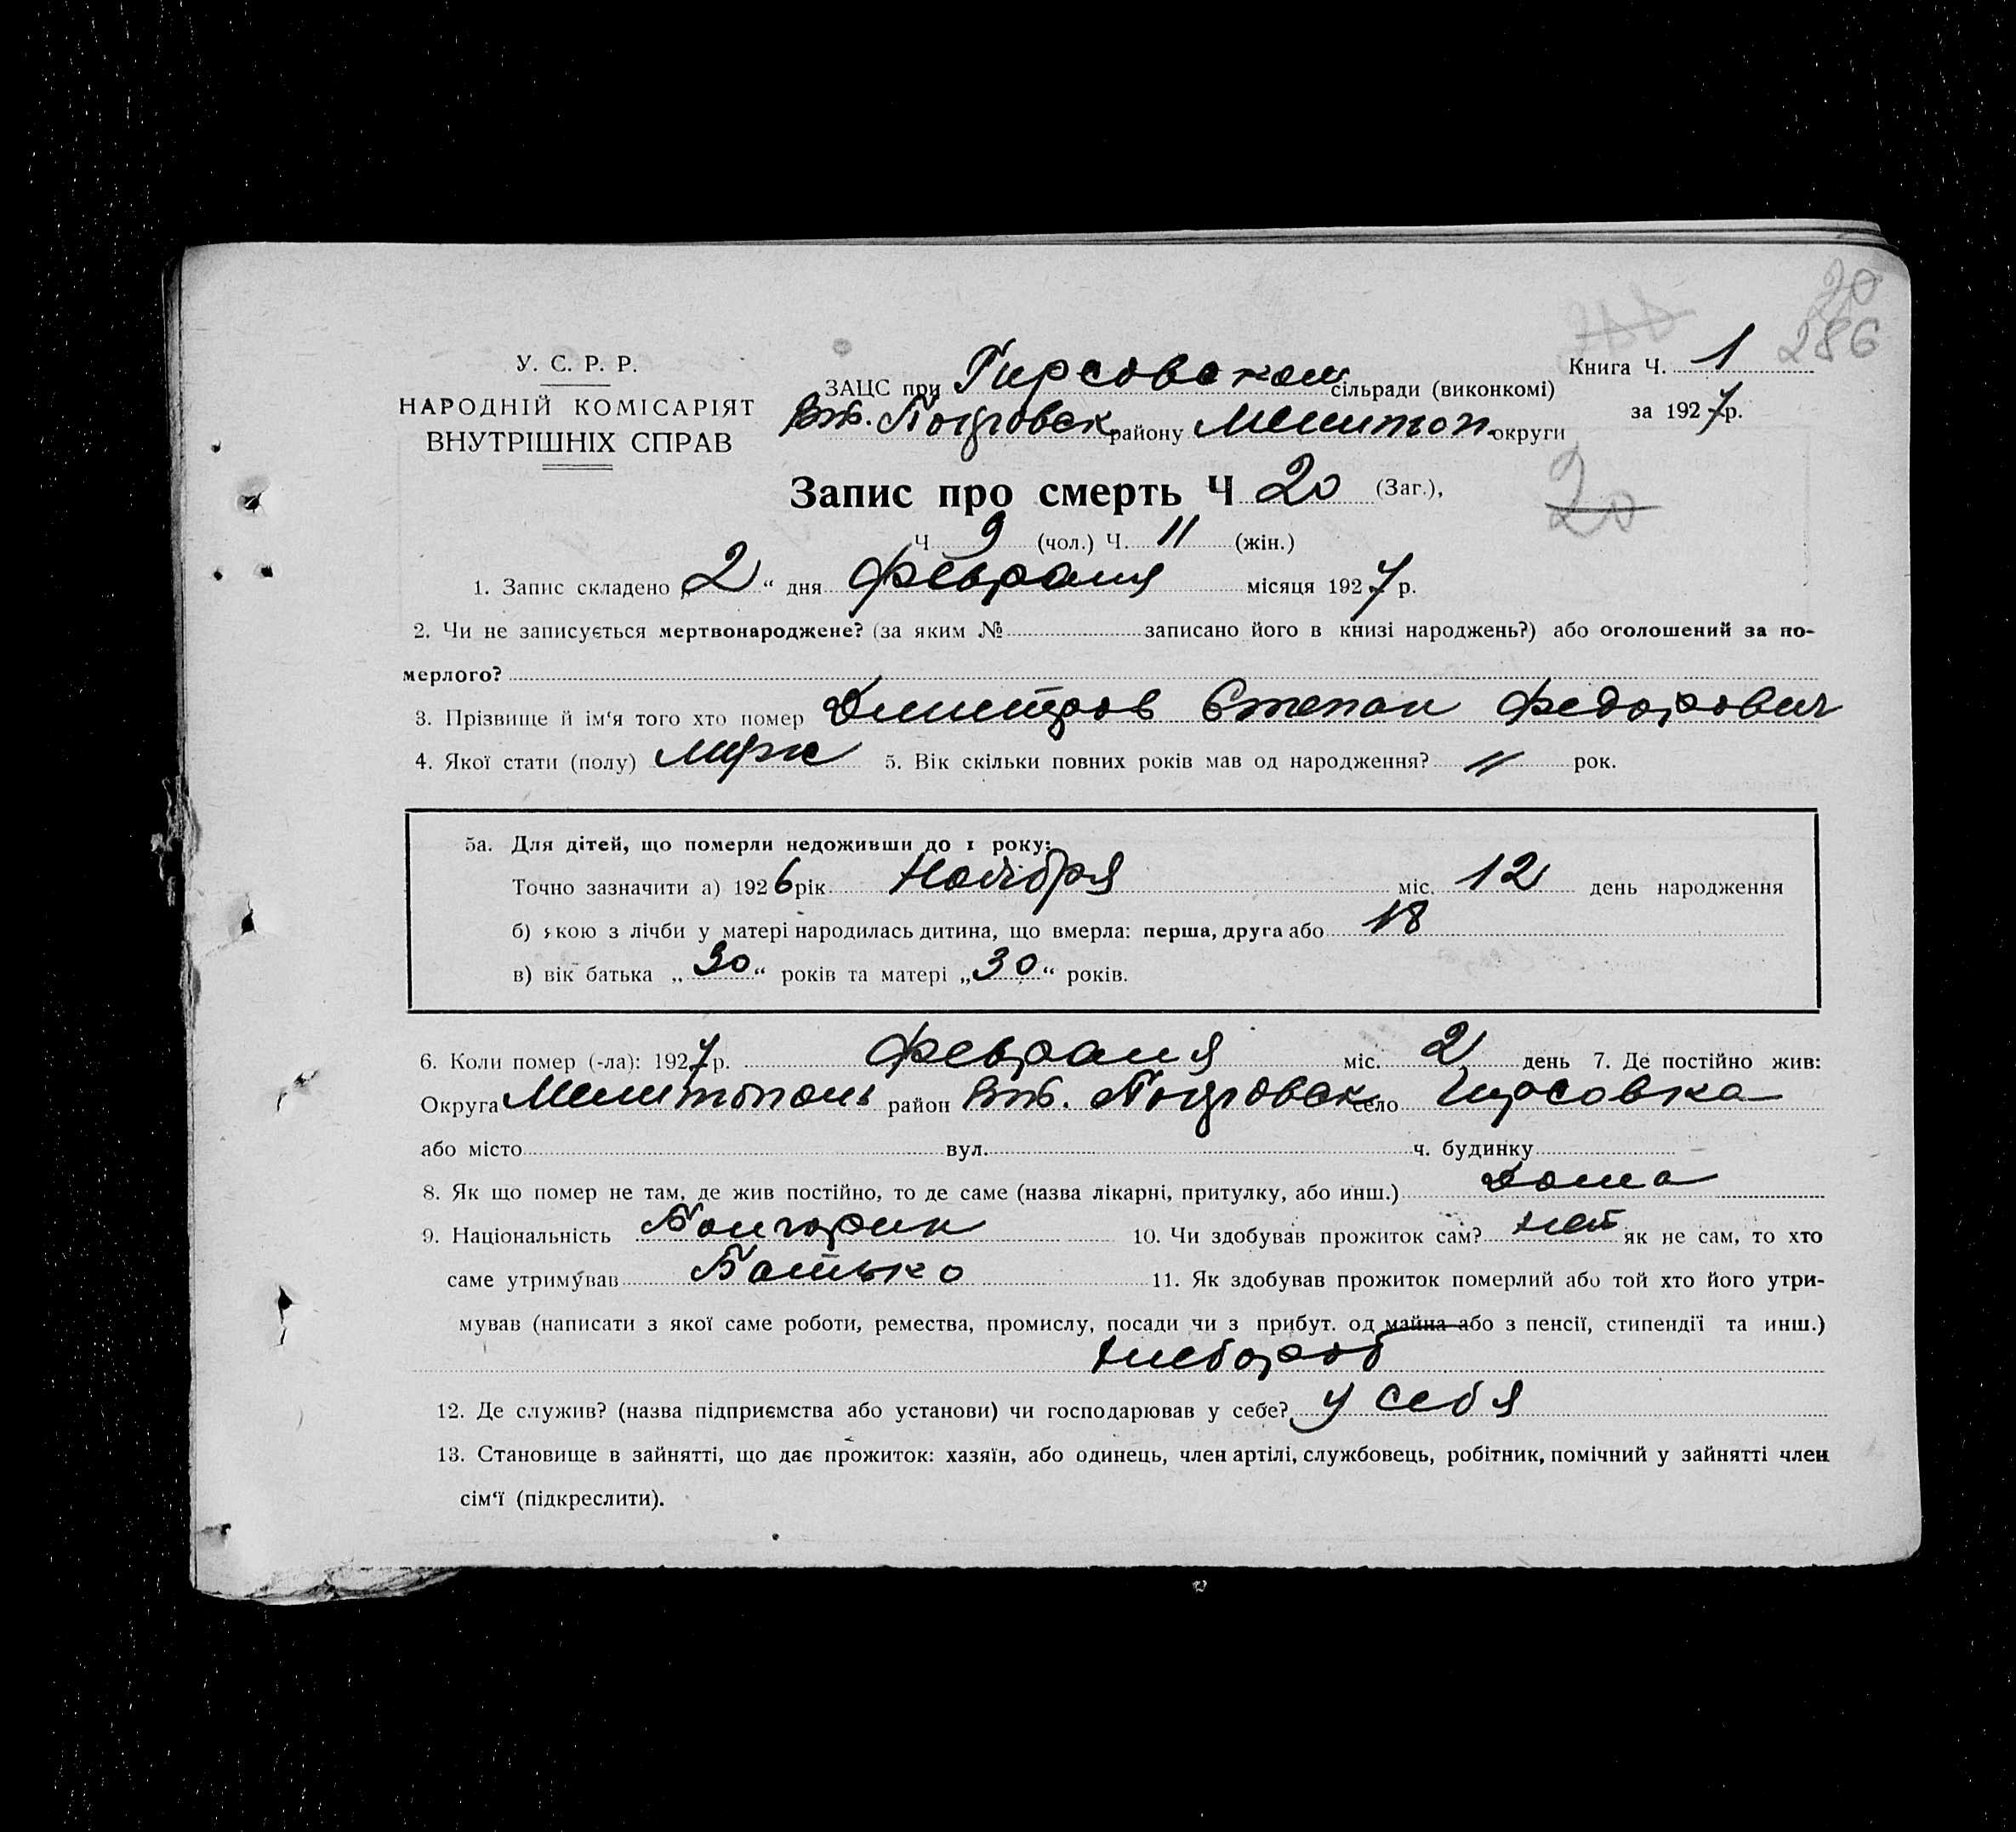 20
286
У. С. Р. Р.
НАРОДНІЙ КОМІСАРІЯТ
ВНУТРІШНІХ СПРАВ
ЗАЦС при Гирсовском сільради (виконкомі)
району Мелитоп. округи
Книга Ч. 1
за 1927 р.
Запис про смерть Ч 20 (Заг.),
20
Ч 9 (чол.) Ч. 11 (жін.)
1. Запис складено „2“ дня Февраля місяця 1927 р.
2. Чи не записується мертвонароджене? (за яким № записано його в книзі народжень?) або оголошений за по-
мерлого?
3. Прізвище й ім‘я того хто помер Димитров Степан Федорович
4. Якої стати (полу) мужс 5. Вік скільки повних років мав од народження? „ рок.
5а. Для дітей, що померли недоживши до 1 року:
Точно зазначити а) 1926 рік Ноября міс. 12 день народження
б) якою з лічби у матері народилась дитина, що вмерла: перша, друга або 18
в) вік батька „30“ років та матері „30“ років.
6. Коли помер (-ла): 1927 р. Февраля міс. 2 день 7. Де постійно жив:
Округа Мелитополь район село Гирсовка
або місто вул. ч. будинку
8. Як що помер не там, де жив постійно, то де саме (назва лікарні, притулку, або инш.) Дома
9. Національність Болгарин 10. Чи здобував прожиток сам? нет як не сам, то хто
саме утримував Батько 11. Як здобував прожиток померлий або той хто його утри-
мував (написати з якої саме роботи, ремества, промислу, посади чи з прибут. од майна або з пенсії, стипендії та инш.)
хлебороб
12. Де служив? (назва підприємства або установи) чи господарював у себе? у себя
13. Становище в зайнятті, що дає прожиток: хазяїн, або одинець, член артілі, службовець, робітник, помічний у зайнятті член
сім‘ї (підкреслити).